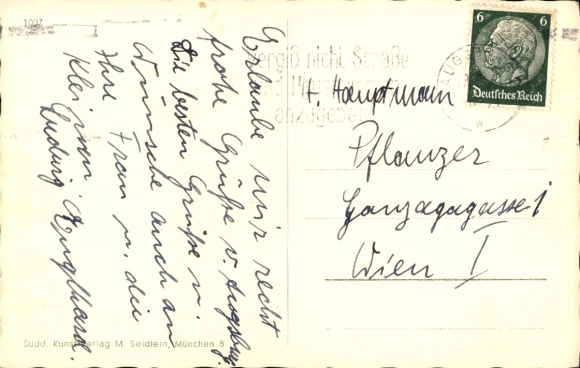 1007
Erlaube mir recht
frohe Grüße v. Augsburg
Die besten Grüße u.
Wünsche auch an
Ihre Frau u. die
Kleinen
Ludwig Englhard.
Südd. Kunstverlag M. Seidlein, München 8
Vergiß nicht Straße
anzugeben
6 6
Deutsches Reich
t. Hauptmann
Pflanzer
Gonzagagasse 1
Wien I